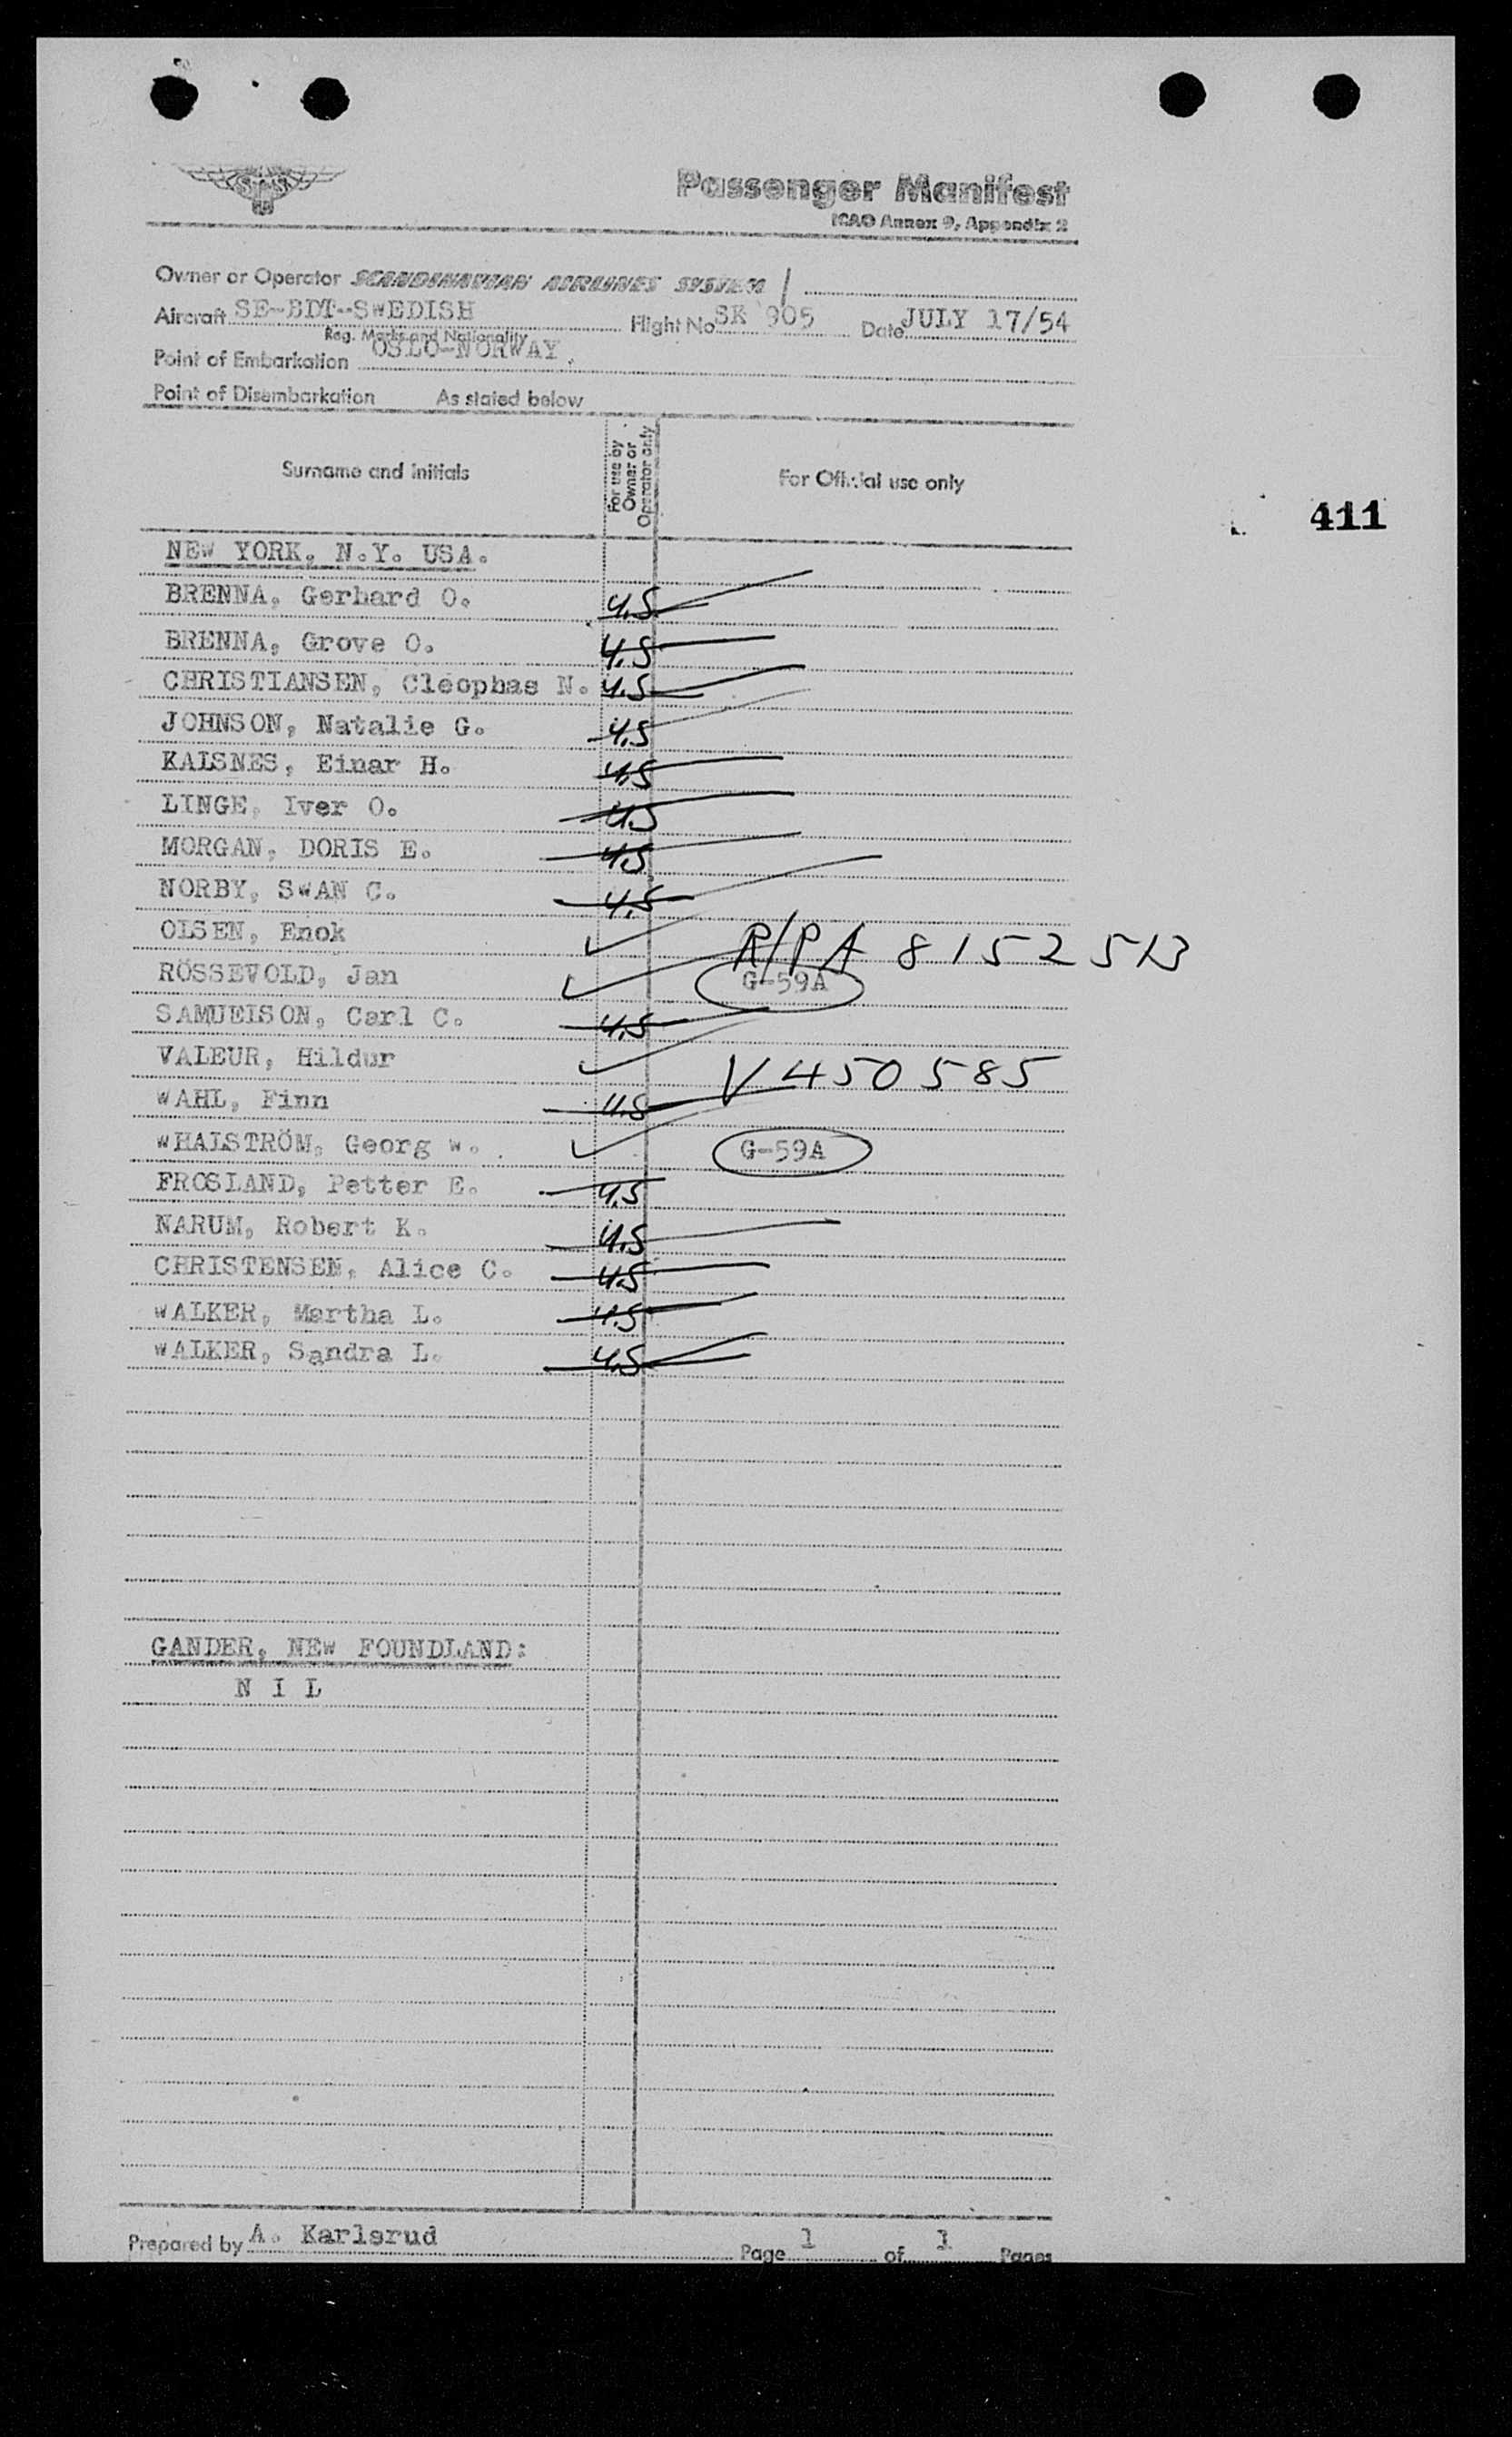 SAS
Passenger Manifest
ICAO Annex 9, Appendix 2
Owner or Operator SCANDINAVIAN AIRLINES SYSTEM /
Aircraft SE-BDT--SWEDISH Flight No SK 905 Date JULY 17/54
Reg. Marks and Nationality
Point of Embarkation OSLO-NORWAY.
Point of Disembarkation As stated below
Surname and initials For use by Owner or Operator only For Official use only
411
NEW YORK. N.Y. USA.
BRENNA, Gerhard O. U.S.
BRENNA, Grove O. U.S
CHRISTIANSEN, Cleophas N. U.S
JOHNSON, Natalie G. U.S
KALSNES, Einar H. U.S
LINGE, Iver O. U.S
MORGAN, DORIS E. U.S
NORBY, SWAN C. U.S
OLSEN, Enok R/P A 8152513
RÖSSEVOLD, Jan G-59A
SAMUELSON, Carl C. U.S
VALEUR, Hildur V 450585
WAHL, Finn U.S
WHALSTRÖM, Georg W. G-59A
FROSLAND, Petter E. U.S
NARUM, Robert K. U.S
CHRISTENSEN, Alice C. U.S
WALKER, Martha L. U.S
WALKER, Sandra L. U.S
GANDER, NEW FOUNDLAND:
N I L
Prepared by A. Karlsrud Page 1 of 1 Pages